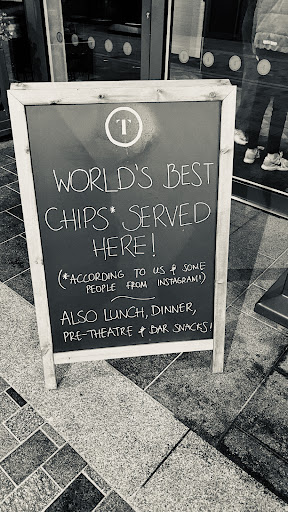 T
WORLD'S BEST
CHIPS* SERVED
HERE!
(*ACCORDING TO US & SOME
PEOPLE FROM INSTAGRAM!)
ALSO LUNCH, DINNER,
PRE-THEATRE & BAR SNACKS!